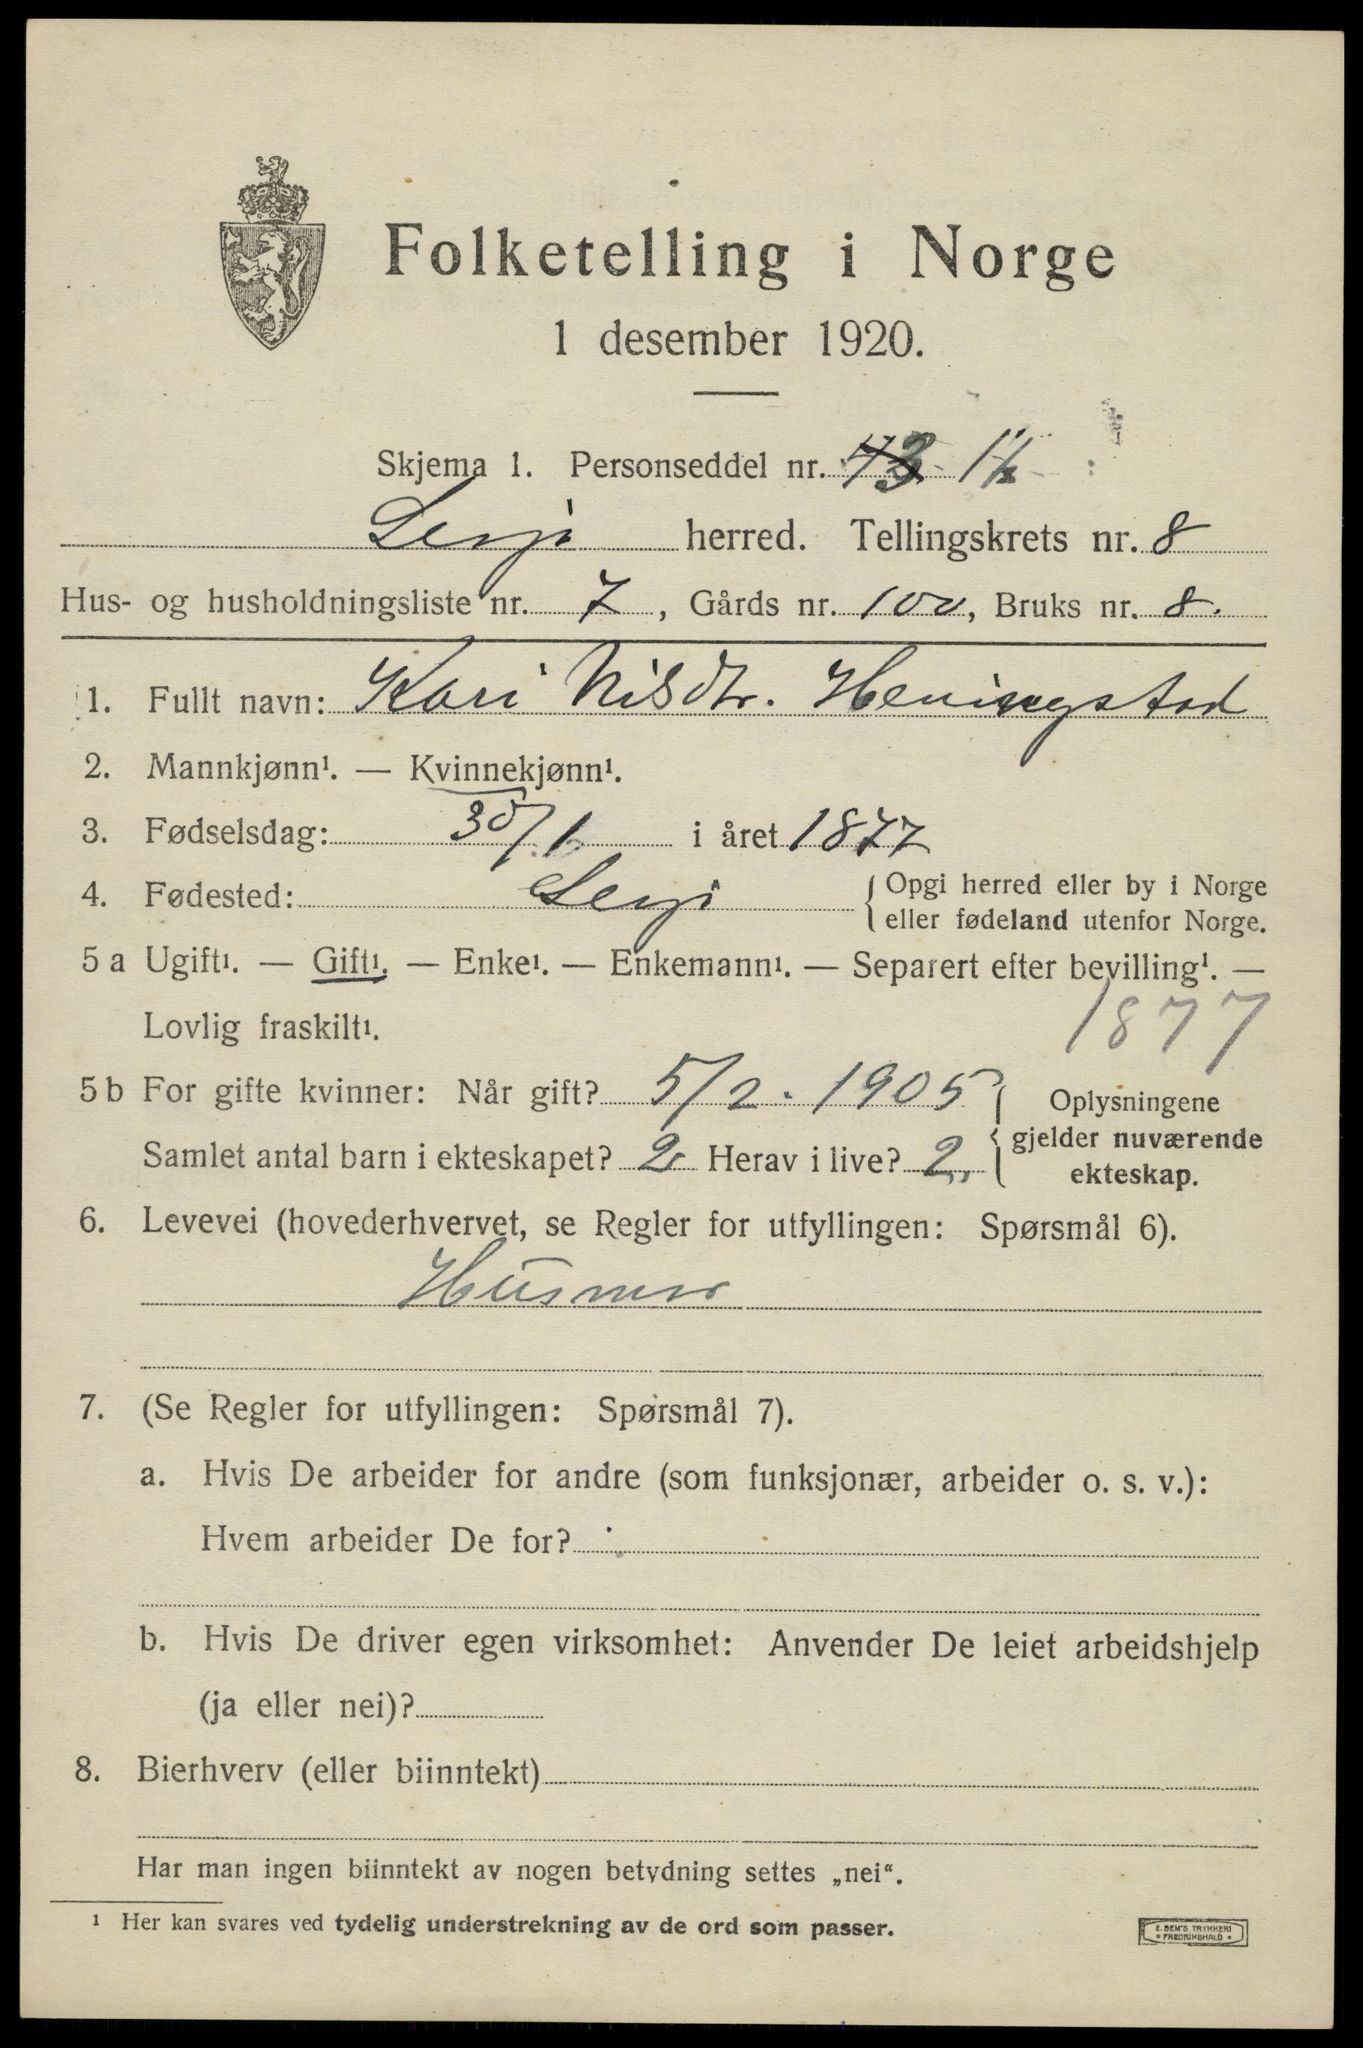 Folketelling i Norge
1 desember 1920.
Skjema 1. Personseddel nr. 43
Lesja herred. Tellingskrets nr. 8
Hus- og husholdningsliste nr. 7, Gårds nr. 100, Bruks nr. 8.
1. Fullt navn: Kari Nilsdtr. Heningstad
2. Mannkjønn¹. — Kvinnekjønn¹.
3. Fødselsdag: 30/1 i året 1877
4. Fødested: Lesja { Opgi herred eller by i Norge
eller fødeland utenfor Norge.
5 a Ugift¹. — Gift¹. — Enke¹. — Enkemann¹. — Separert efter bevilling¹. —
Lovlig fraskilt¹. 1877
5 b For gifte kvinner: Når gift? 5/2. 1905
Samlet antal barn i ekteskapet? 2 Herav i live? 2,
{ Oplysningene
gjelder nuværende
ekteskap.
6. Levevei (hovederhvervet, se Regler for utfyllingen: Spørsmål 6).
Husmor
7. (Se Regler for utfyllingen: Spørsmål 7).
a. Hvis De arbeider for andre (som funksjonær, arbeider o. s. v.):
Hvem arbeider De for?
b. Hvis De driver egen virksomhet: Anvender De leiet arbeidshjelp
(ja eller nei)?
8. Bierhverv (eller biinntekt)
Har man ingen biinntekt av nogen betydning settes „nei“.
¹ Her kan svares ved tydelig understrekning av de ord som passer.
E. SEM'S TRYKKERI
* FREDRIKSHALD *